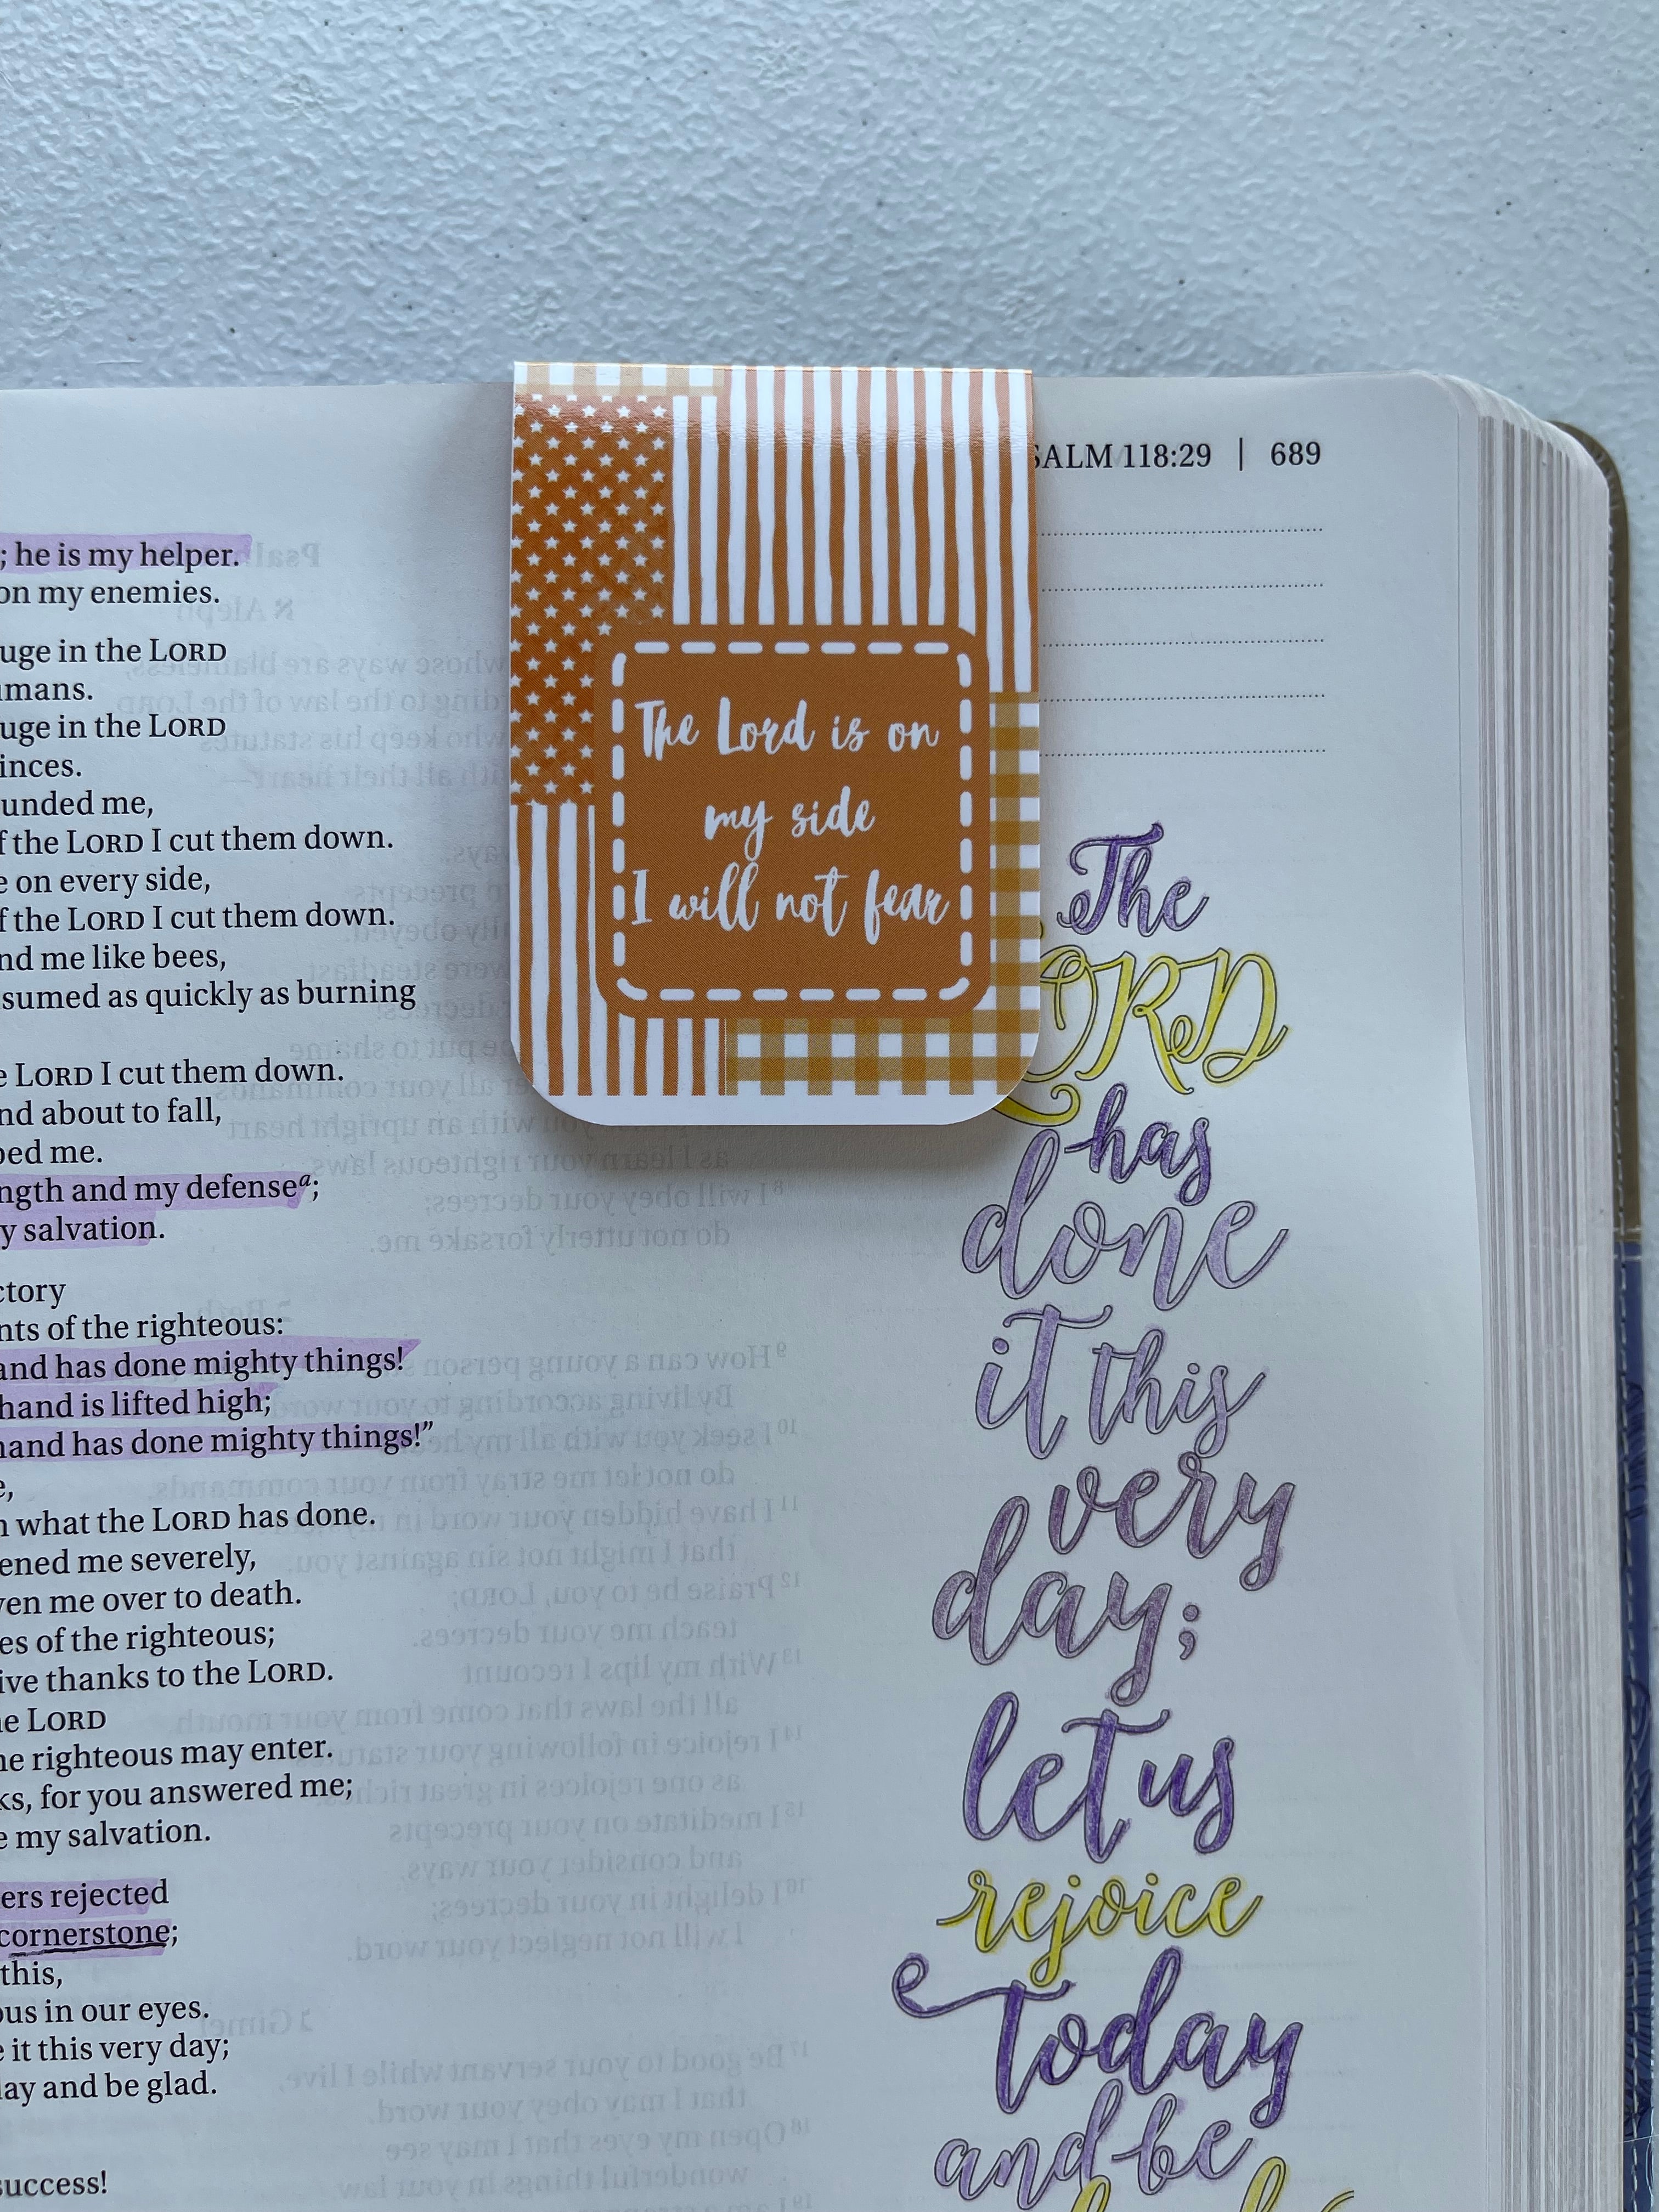 SALM 118:29 | 689
; he is my helper.
on my enemies.
uge in the LORD
umans.
uge in the LORD
inces.
unded me,
f the LORD I cut them down.
e on every side,
f the LORD I cut them down.
nd me like bees,
sumed as quickly as burning
e LORD I cut them down.
nd about to fall,
ped me.
ngth and my defensea;
y salvation.
ctory
nts of the righteous:
and has done mighty things!
hand is lifted high;
hand has done mighty things!”
e,
n what the LORD has done.
ened me severely,
ven me over to death.
es of the righteous;
ive thanks to the LORD.
he LORD
he righteous may enter.
ks, for you answered me;
e my salvation.
ers rejected
cornerstone;
this,
ous in our eyes.
e it this very day;
lay and be glad.
success!
The Lord is on
my side
I will not fear
The
LORD
has
done
it this
very
day;
let us
rejoice
today
and be